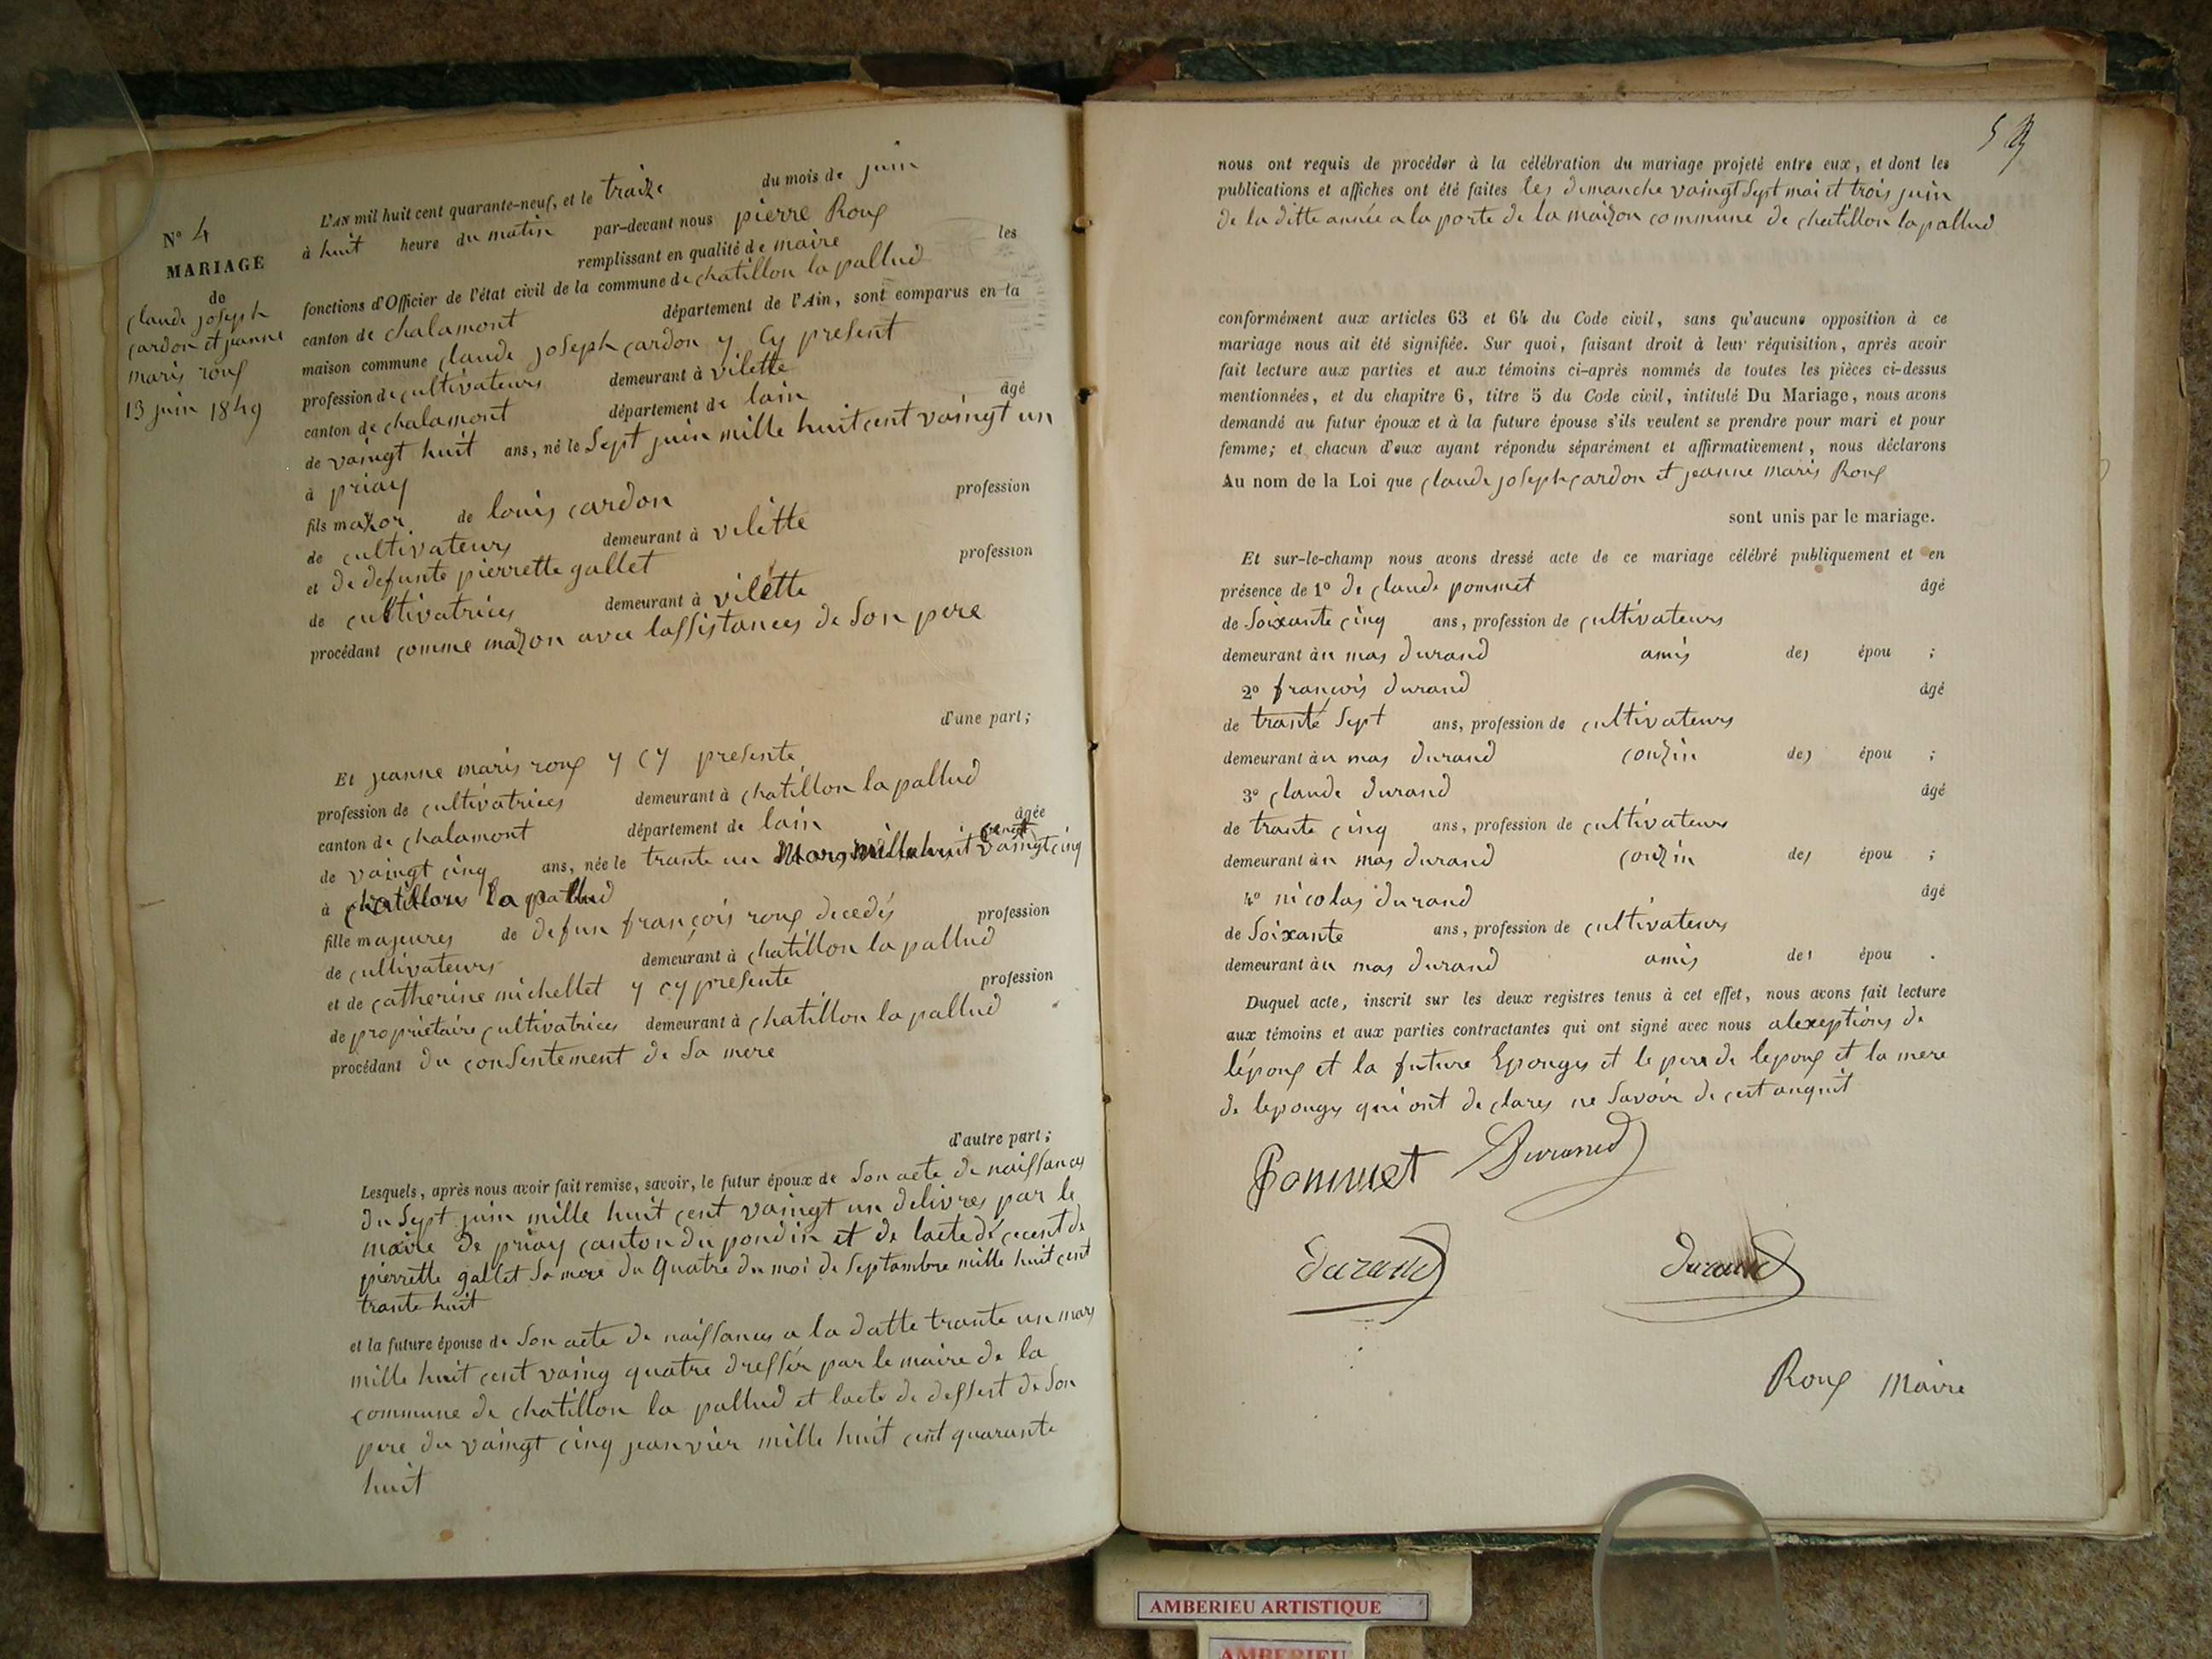 N° 4
MARIAGE
de
claude joseph
cardon et jeanne
maris roux
13 juin 1849
L'AN mil huit cent quarante-neuf, et le traize du mois de juin
à huit heure du matin par-devant nous pierre Roux
remplissant en qualité de maire les
fonctions d'Officier de l'état civil de la commune de chatillon la pallud
canton de chalamont département de l'Ain, sont comparus en la
maison commune claude joseph cardon y cy present
profession de cultivateurs demeurant à vilette
canton de chalamont département de lain âgé
de vaingt huit ans, né le Sept juin mille huit cent vaingt un
à priay
fils mazor de louis cardon profession
de cultivateurs demeurant à vilette
et de defunte pierrette gallet profession
de cultivatrices demeurant à vilette
procédant comme mazon avec lassistances de Son pere
d'une part;
Et jeanne maris roux y cy presente
profession de cultivatrices demeurant à chatillon la pallud
canton de chalamont département de lain âgée
de vaingt cinq ans, née le trante un Mars mille huit cent vaingt cinq
à chatillons la pallud
fille majeures de defun françois roux decedés profession
de cultivateurs demeurant à chatillon la pallud
et de catherine michellet y cy presente profession
de propriétaire cultivatrices demeurant à chatillon la pallud
procédant du consentement de Sa mere
d'autre part;
Lesquels, après nous avoir fait remise, savoir, le futur époux de Son acte de naissances
du Sept juin mille huit cent vaingt un delivres par le
maire de priay canton du pondin et de lacte dé cecent de
pierrette gallet Sa mere du Quatre du moi de Septambre mille huit cent
trante huit
et la future épouse de Son acte de naissances a la datte trante un mars
mille huit cent vaing quatre dressér par le maire de la
commune de chatillon la pallud et lacte de dessest de Son
pere du vaingt cinq jeanvier mille huit cent quarante
huit
59
nous ont requis de procéder à la célébration du mariage projeté entre eux, et dont les
publications et affiches ont été faites les dimanche vaingt Sept mai et trois juin
de la ditte année a la porte de la maizon commune de chatillon la pallud
conformément aux articles 63 et 64 du Code civil, sans qu'aucune opposition à ce
mariage nous ait été signifiée. Sur quoi, faisant droit à leur réquisition, après avoir
fait lecture aux parties et aux témoins ci-après nommés de toutes les pièces ci-dessus
mentionnées, et du chapitre 6, titre 5 du Code civil, intitulé Du Mariage, nous avons
demandé au futur époux et à la future épouse s'ils veulent se prendre pour mari et pour
femme; et chacun d'eux ayant répondu séparément et affirmativement, nous déclarons
Au nom de la Loi que claude joseph cardon et jeanne maris Roux
sont unis par le mariage.
Et sur-le-champ nous avons dressé acte de ce mariage célébré publiquement et en
présence de 1° de claude pommet âgé
de Soixante cinq ans, profession de cultivateurs
demeurant àu mas durand amis des épou ;
2° françois durand âgé
de trante Sept ans, profession de cultivateurs
demeurant àu mas durand couzin des épou ;
3° claude durand âgé
de trante cinq ans, profession de cultivateurs
demeurant àu mas durand couzin des épou ;
4° nicolas durand âgé
de Soixante ans, profession de cultivateurs
demeurant àu mas durand amis des épou .
Duquel acte, inscrit sur les deux registres tenus à cet effet, nous avons fait lecture
aux témoins et aux parties contractantes qui ont signé avec nous alexeptions de
lépoux et la future Epouges et le pere de lepoux et la mere
de lepouges qui ont de clares ne Savoir de cest anquit
Pommet Durand
durand durand
Roux Maire
AMBERIEU ARTISTIQUE
AMBERIEU